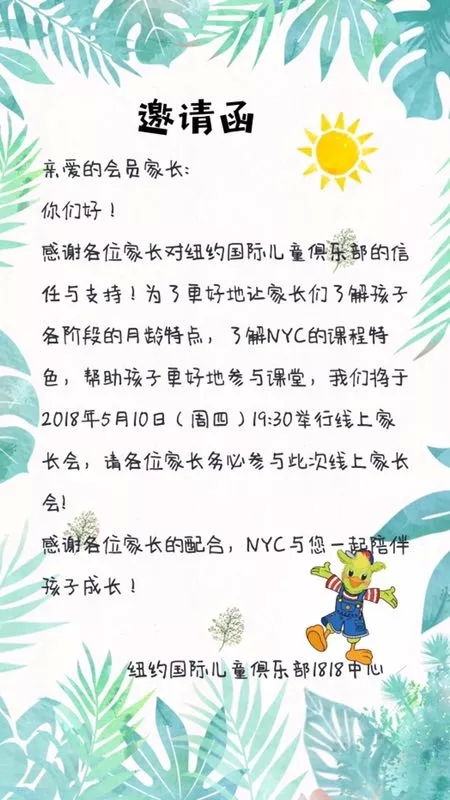 邀请函
亲爱的会员家长:
你们好！
感谢各位家长对纽约国际儿童俱乐部的信
任与支持！为了更好地让家长们了解孩子
各阶段的月龄特点，了解NYC的课程特
色，帮助孩子更好地参与课堂，我们将于
2018年5月10日（周四）19:30举行线上家
长会，请各位家长务必参与此次线上家长
会!
感谢各位家长的配合，NYC与您一起陪伴
孩子成长！
纽约国际儿童俱乐部1818中心